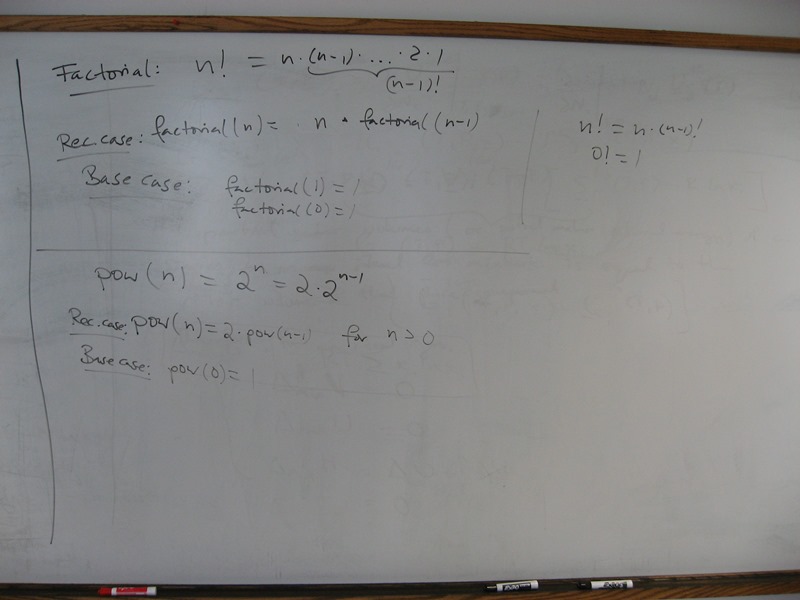 Factorial: n! = n·(n-1)· ... ·2·1
(n-1)!
Rec. case: factorial(n) = n * factorial((n-1)
Base case: factorial(1) = 1
factorial(0) = 1
n! = n·(n-1)!
0! = 1
pow(n) = 2^n = 2·2^n-1
Rec. case: pow(n) = 2·pow(n-1) for n > 0
Base case: pow(0) = 1